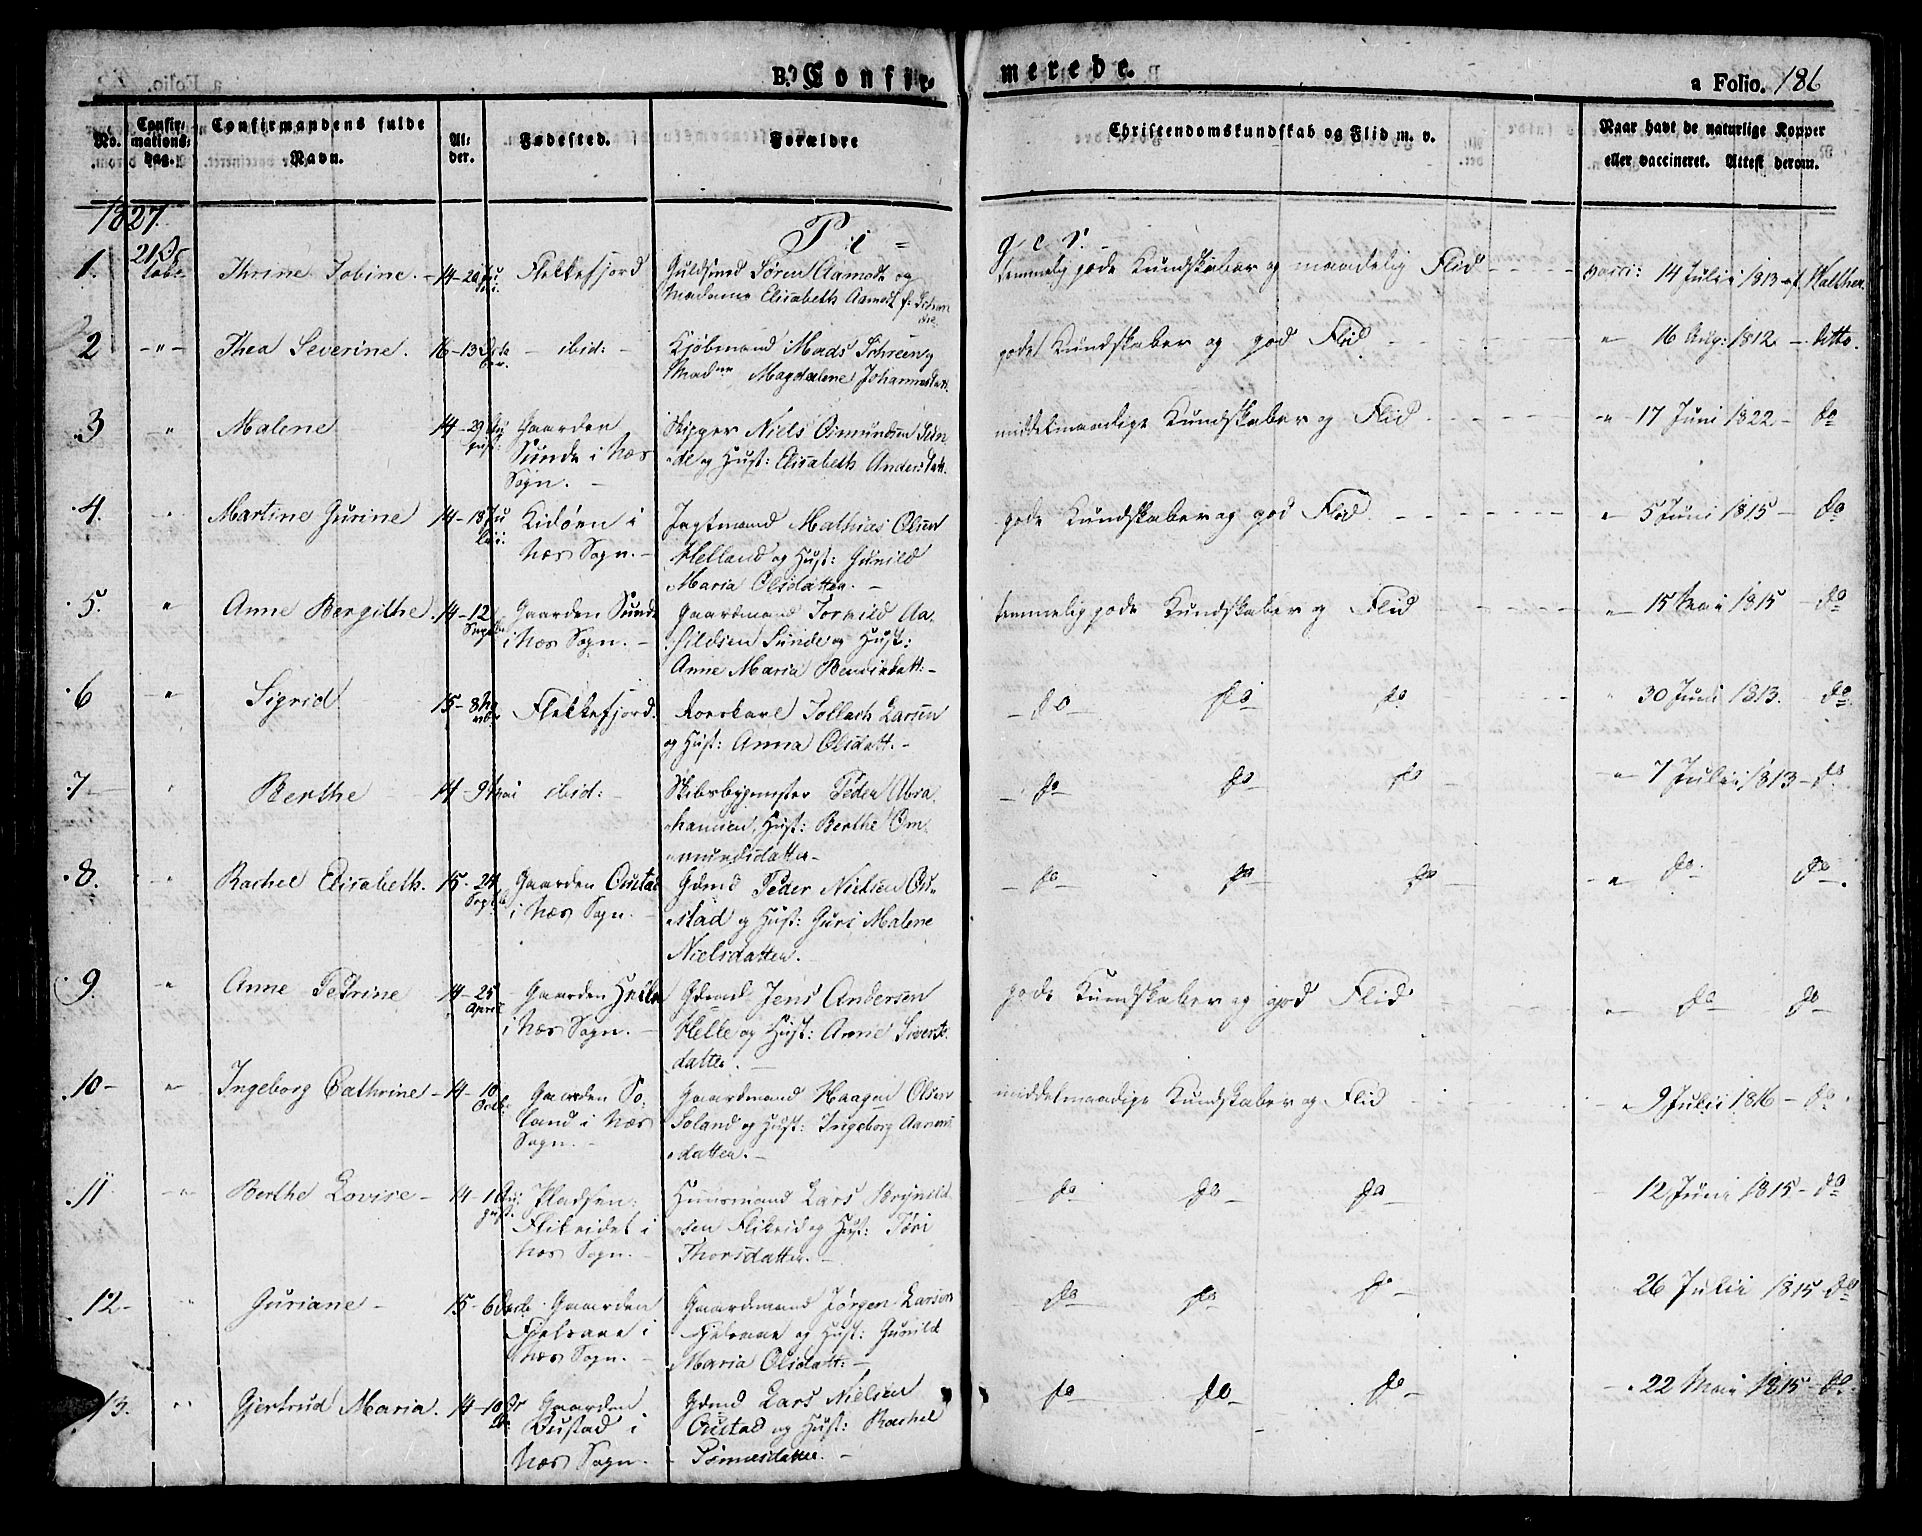 B.) Confir- merede.
a Folio. 186
No.
Confir-
mations-
dag.
Confirmandens fulde
Navn.
Al-
der.
Fødested.
Forældre
Christendomskundskab og Flid m. v.
Naar havt de naturlige Kopper
eller vaccineret. Attest derom.
1827.
P i = g e r.
1. 21 Octobr. Thrine Tobine. 14 - 20 Flekkefjord Guldsmed Sören Aamodt og
Madame Elisabeth Aamodt f.
temmelig gode Kundskaber og maadelig Flid 14 Julii 1813 af Walther.
2 - " - Thea Severine. 16 - 13 - ibid: - Kjöbmand Mads
Magdalene
gode Kundskaber og god Flid " 16 Aug: 1812 - ditto.
3 " Malene 14 - 29 Gaarden
Sunde i Næs
Sogn. -
Skipper Niels Osmundsen Sun-
de og Hust: Elisabeth Andersdatt.
middelmaadige Kundskaber og Flid " 17 Juni 1822 - do
4. " Martine Gurine 14 - 18 Ju
lii. Kidöen i
Næs Sogn. -
Jagtmand Mathias Olsen
Helland og Hust: Gunild
Maria Olsdatter. -
gode Kundskaber og god Flid " 5 Juni 1815 - do
5. " Anne Bergithe. 14 - 12 Gaarden Sunde
i Næs Sogn. -
Gaardmand Torkild Aa-
Sunde og Hust:
Anne Maria
temmelig gode Kundskaber og Flid " 15 Mai 1815 - do
6 - " Sigrid 15 - 8 Flekkefjord. Tollach Larsen
og Hust: Anna Olsdatt. -
- do do do " 30 Juni 1813. - do
7 - " Berthe 14 - 9 Mai ibid: - Skibsbygmester Peder Abra-
hamsen, Hust: Berthe Om-
mundsdatter -
- do do - do - - " 7 Julii 1813 - do
8. " Rachel Elisabeth. 15 - 24
Septb Gaarden Oustad
i Næs Sogn. -
Gdmd Peder Nielsen Ou-
stad og Hust: Guri Malene
Nielsdatter.
- do do do - - " - do - do - .
9. " Anne Petrine 14 - 25
April - Gaarden
i Næs Sogn. -
Gdmd Jens Andersen
Helle og Hust: Anne Siverts-
datter. -
gode Kundskaber og god Flid " do do -
10 - " Ingeborg Cathrine - 14 - 10
Octb: Gaarden So-
land i Næs
Sogn. -
Gaardmand Haagen Olsen
Soland og Hust: Ingeborg
datter. -
middelmaadige Kundskaber og Flid " 9 Julii 1816 - do
11 - " - Berthe Lovise - 14 - 1 Au
gust. Pladsen
Flikeidet i
Næs Sogn. -
Huusmand Lars Brynild
sen Flikeid og Hust: Tori
Thorsdatter. -
- do - do - do - 12 Juni 1815 - do
12 - " Guriane - 15 - 6 Gaarden
Fjelsaae i
Næs Sogn. -
Gaardmand Jörgen Larsen
Fjelsaae og Hust: Gunild
Maria Olsdatt: -
do - do - do - 26 Julii 1815 - do
13. " Gjertrud Maria. 14 - 10 Gaarden
Oustad i
Næs Sogn. -
Gdmd Lars Nielsen
Oustad og Hust: Rachel
Tönnesdatter. -
do - do - do - - " 22 Mai 1815 - do.